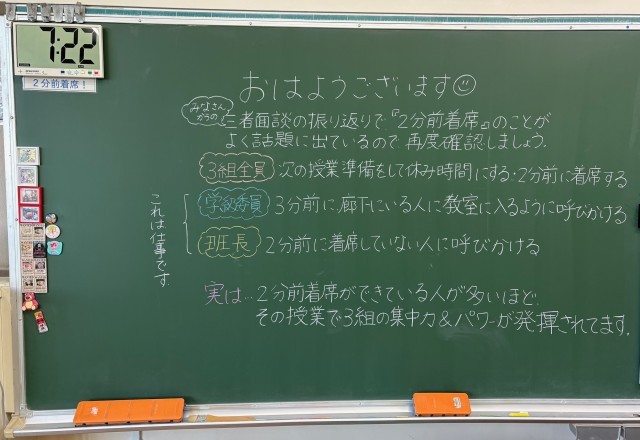 7:22
2分前着席！
おはようございます
みなさんからの！
三者面談の振り返りで『2分前着席』のことが
よく話題に出ているので再度確認しましょう。
3組全員 次の授業準備をして休み時間にする・2分前に着席する
学級委員 3分前に廊下にいる人に教室に入るように呼びかける
班長 2分前に着席していない人に呼びかける
これは仕事です
実は… 2分前着席ができている人が多いほど
その授業で3組の集中力&パワーが発揮されてます。